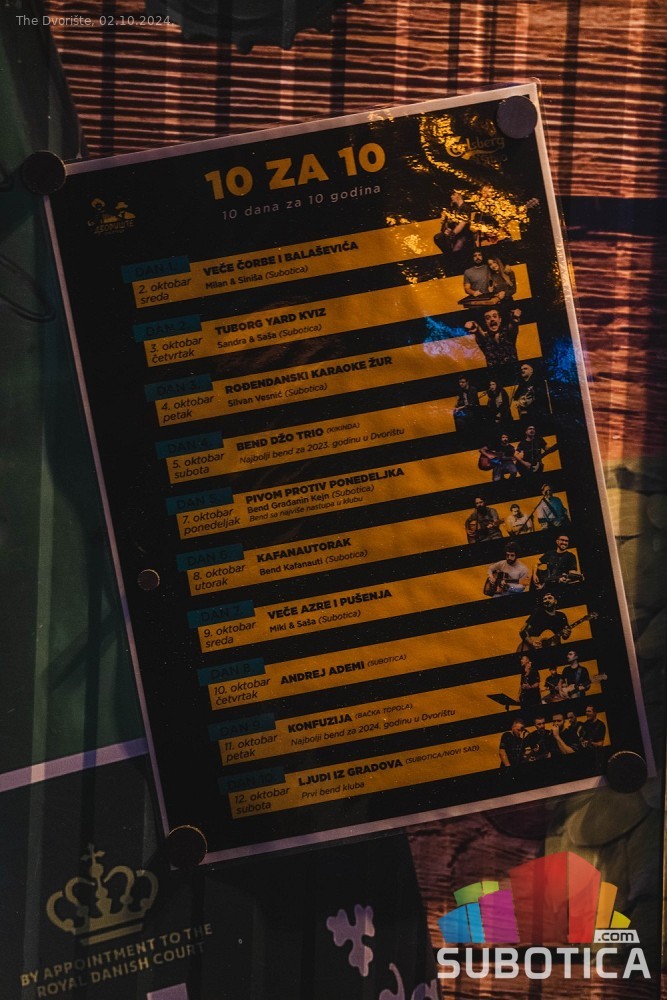 The Dvorište, 02.10.2024.
Carlsberg
10 ZA 10
10 dana za 10 godina
DVORIŠTE
DAN 1.
2. oktobar
sreda
VEČE ČORBE I BALAŠEVIĆA
Milan & Siniša (Subotica)
DAN 2.
3. oktobar
četvrtak
TUBORG YARD KVIZ
Sandra & Saša (Subotica)
DAN 3.
4. oktobar
petak
ROĐENDANSKI KARAOKE ŽUR
Silvan Vesnić (Subotica)
DAN 4.
5. oktobar
subota
BEND DŽO TRIO (KIKINDA)
Najbolji bend za 2023. godinu u Dvorištu
DAN 5.
7. oktobar
ponedeljak
PIVOM PROTIV PONEDELJKA
Bend Građanin Kejn (Subotica)
Bend sa najviše nastupa u klubu
DAN 6.
8. oktobar
utorak
KAFANAUTORAK
Bend Kafanauti (Subotica)
DAN 7.
9. oktobar
sreda
VEČE AZRE I PUŠENJA
Miki & Saša (Subotica)
DAN 8.
10. oktobar
četvrtak
ANDREJ ADEMI (SUBOTICA)
DAN 9.
11. oktobar
petak
KONFUZIJA (BAČKA TOPOLA)
Najbolji bend za 2024. godinu u Dvorištu
DAN 10.
12. oktobar
subota
LJUDI IZ GRADOVA (SUBOTICA/NOVI SAD)
Prvi bend kluba
BY APPOINTMENT TO THE
ROYAL DANISH COURT
.com
SUBOTICA